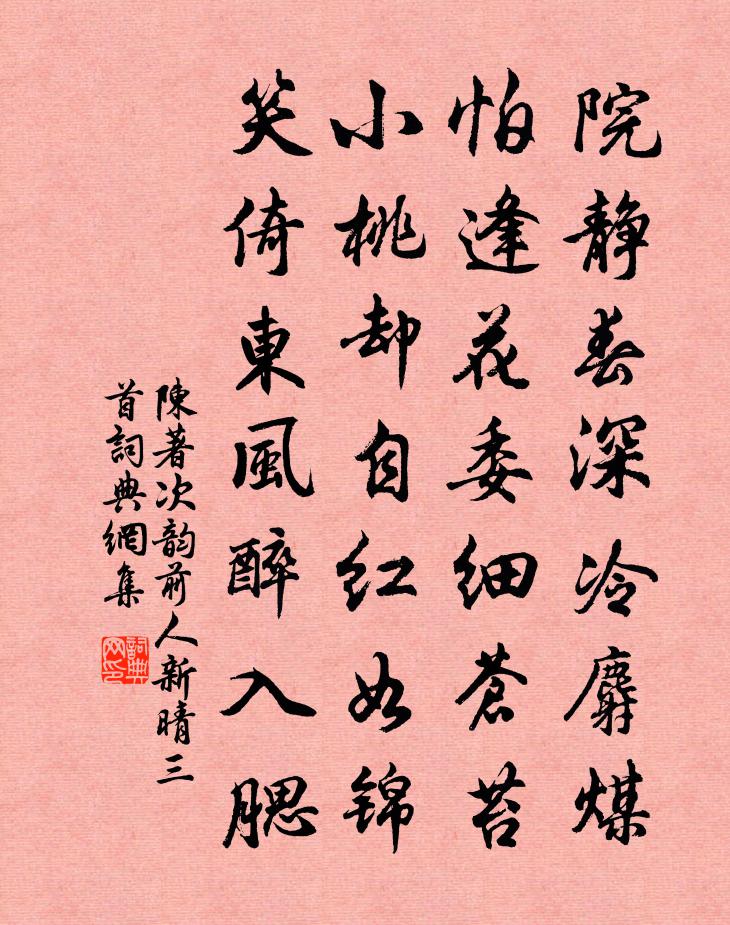 院靜春深冷麝煤
怕逢花委細蒼苔
小桃却自紅如錦
笑倚東風醉入腮
陳著次韵前人新晴三
首詞典網集
詞典網印